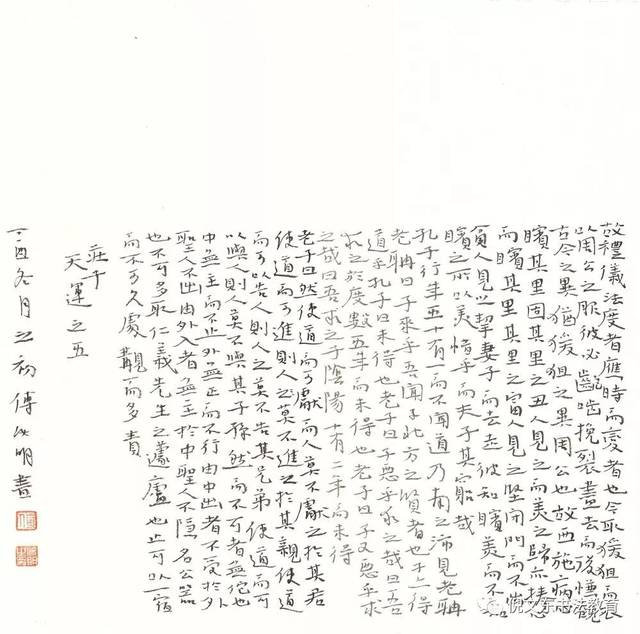 故禮儀法度者應時而變者也今取猨狙而衣
以周公之服彼必齕齧挽裂盡去而後慊觀
古今之異猶猨狙之異周公也故西施病心
矉其里固其里之丑人見之而美之歸亦捧心
而矉其里其里之富人見之堅閉門而不出
貧人見之挈妻子而去走彼知矉美而不知
矉之所以美惜乎而夫子其窮哉
孔子行年五十有一而不聞道乃南之沛見老聃
老聃曰子來乎吾聞子北方之賢者也子得
道乎孔子曰未得也老子曰子惡乎求之哉曰吾
求之於度數五年而未得也老子曰子又惡乎求
之哉曰吾求之于陰陽十有二年而未得
老子曰然使道而可獻而人莫不獻之於其君
使道而可進則人之莫不進之於其親使道
而可以告人則人之莫不告其兄弟使道而可
以與人則人莫不與其子孫然而不可者無佗也
中無主而不止外無正而不行由中出者不受於外
聖人不出由外入者無主於中聖人不隱名公器
也不可多取仁義先生之蘧廬也止可以一宿
而不可久處覯而多責
莊子
天運之五
丁酉冬月之初傅明書
倪文东书法教育